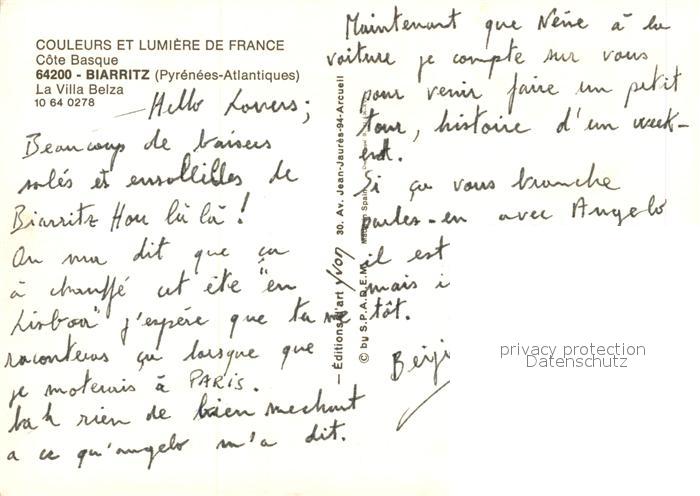 COULEURS ET LUMIÈRE DE FRANCE
Côte Basque
64200 - BIARRITZ (Pyrénées-Atlantiques)
La Villa Belza
10 64 0278
— Hello Lovers;
Beaucoup de baisers
salés et ensoleillés de
Biarritz Hou là là !
On m'a dit que ça
à chauffé cet été "en
Lisboa" j'espère que tu me
raconteras ça lorsque que
je moterais à PARIS.
bah rien de bien mechant
a ce qu'angelo m'a dit.
— Éditions d'art Yvon 30, Av. Jean-Jaurès-94-Arcueil
© by S.P.A.D.E.M.
Maintenant que Néné à la
voiture je compte sur vous
pour venir faire un petit
tour, histoire d'un week-
end.
Si ça vous branche
parles-en avec Angelo
il est
mais i
tôt.
Beiji
privacy protection
Datenschutz